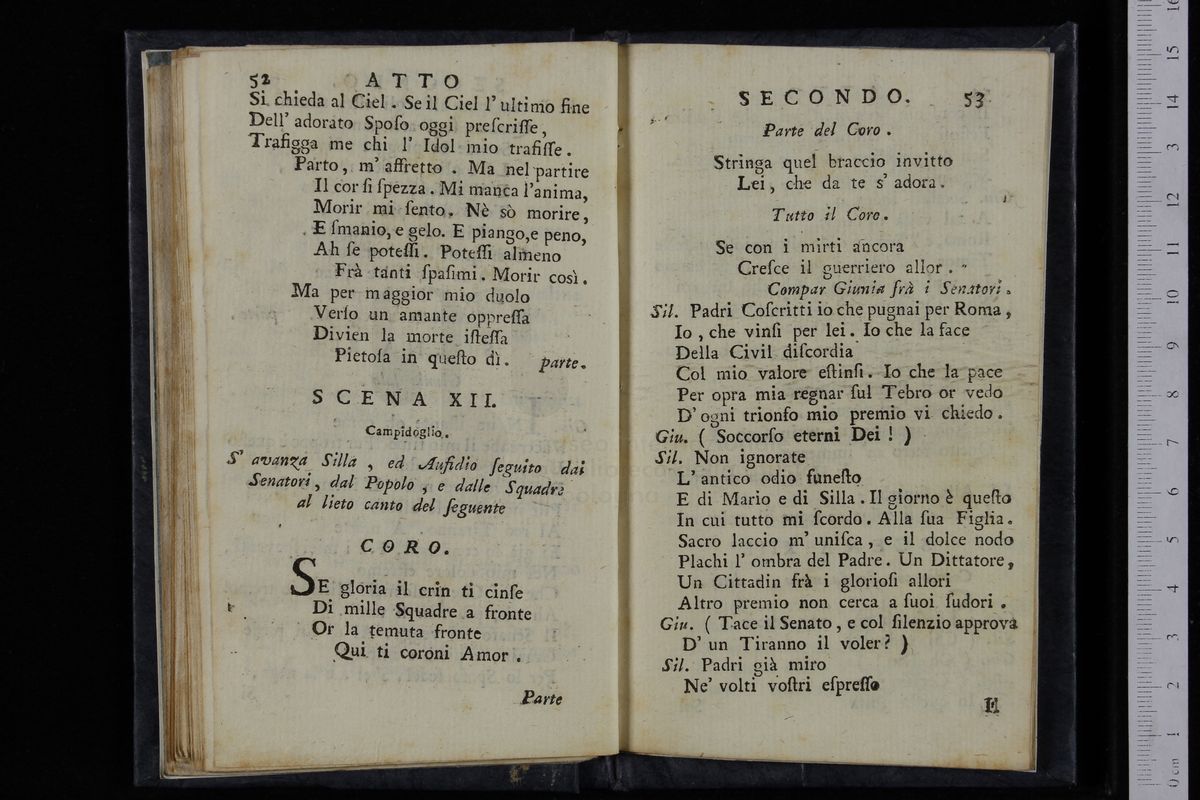 52 ATTO
Si chieda al Ciel. Se il Ciel l' ultimo fine
Dell' adorato Spoſo oggi preſcriſſe,
Trafigga me chi l' Idol mio trafiſſe.
Parto, m' affretto. Ma nel partire
Il cor ſi ſpezza. Mi manca l'anima,
Morir mi ſento. Nè sò morire,
E ſmanio, e gelo. E piango,e peno,
Ah ſe poteſſi. Poteſſi almeno
Frà tanti ſpaſimi. Morir così.
Ma per maggior mio duolo
Verſo un amante oppreſſa
Divien la morte iſteſſa
Pietoſa in queſto dì. parte.
SCENA XII.
Campidoglio.
S' avanza Silla, ed Aufidio ſeguito dai
Senatori, dal Popolo, e dalle Squadre
al lieto canto del ſeguente
CORO.
SE gloria il crin ti cinſe
Di mille Squadre a fronte
Or la temuta fronte
Qui ti coroni Amor.
Parte
SECONDO. 53
Parte del Coro.
Stringa quel braccio invitto
Lei, che da te s' adora.
Tutto il Coro.
Se con i mirti ancora
Creſce il guerriero allor.
Compar Giunia frà i Senatori.
Sil. Padri Coſcritti io che pugnai per Roma,
Io, che vinſi per lei. Io che la face
Della Civil diſcordia
Col mio valore eſtinſi. Io che la pace
Per opra mia regnar ſul Tebro or vedo
D' ogni trionfo mio premio vi chiedo.
Giu. ( Soccorſo eterni Dei! )
Sil. Non ignorate
L' antico odio funeſto
E di Mario e di Silla. Il giorno è queſto
In cui tutto mi ſcordo. Alla ſua Figlia.
Sacro laccio m' uniſca, e il dolce nodo
Plachi l' ombra del Padre. Un Dittatore,
Un Cittadin frà i glorioſi allori
Altro premio non cerca a ſuoi ſudori.
Giu. ( Tace il Senato, e col ſilenzio approva
D' un Tiranno il voler? )
Sil. Padri già miro
Ne' volti voſtri eſpreſſo
H
0 cm 1 2 3 4 5 6 7 8 9 10 11 12 13 14 15 16